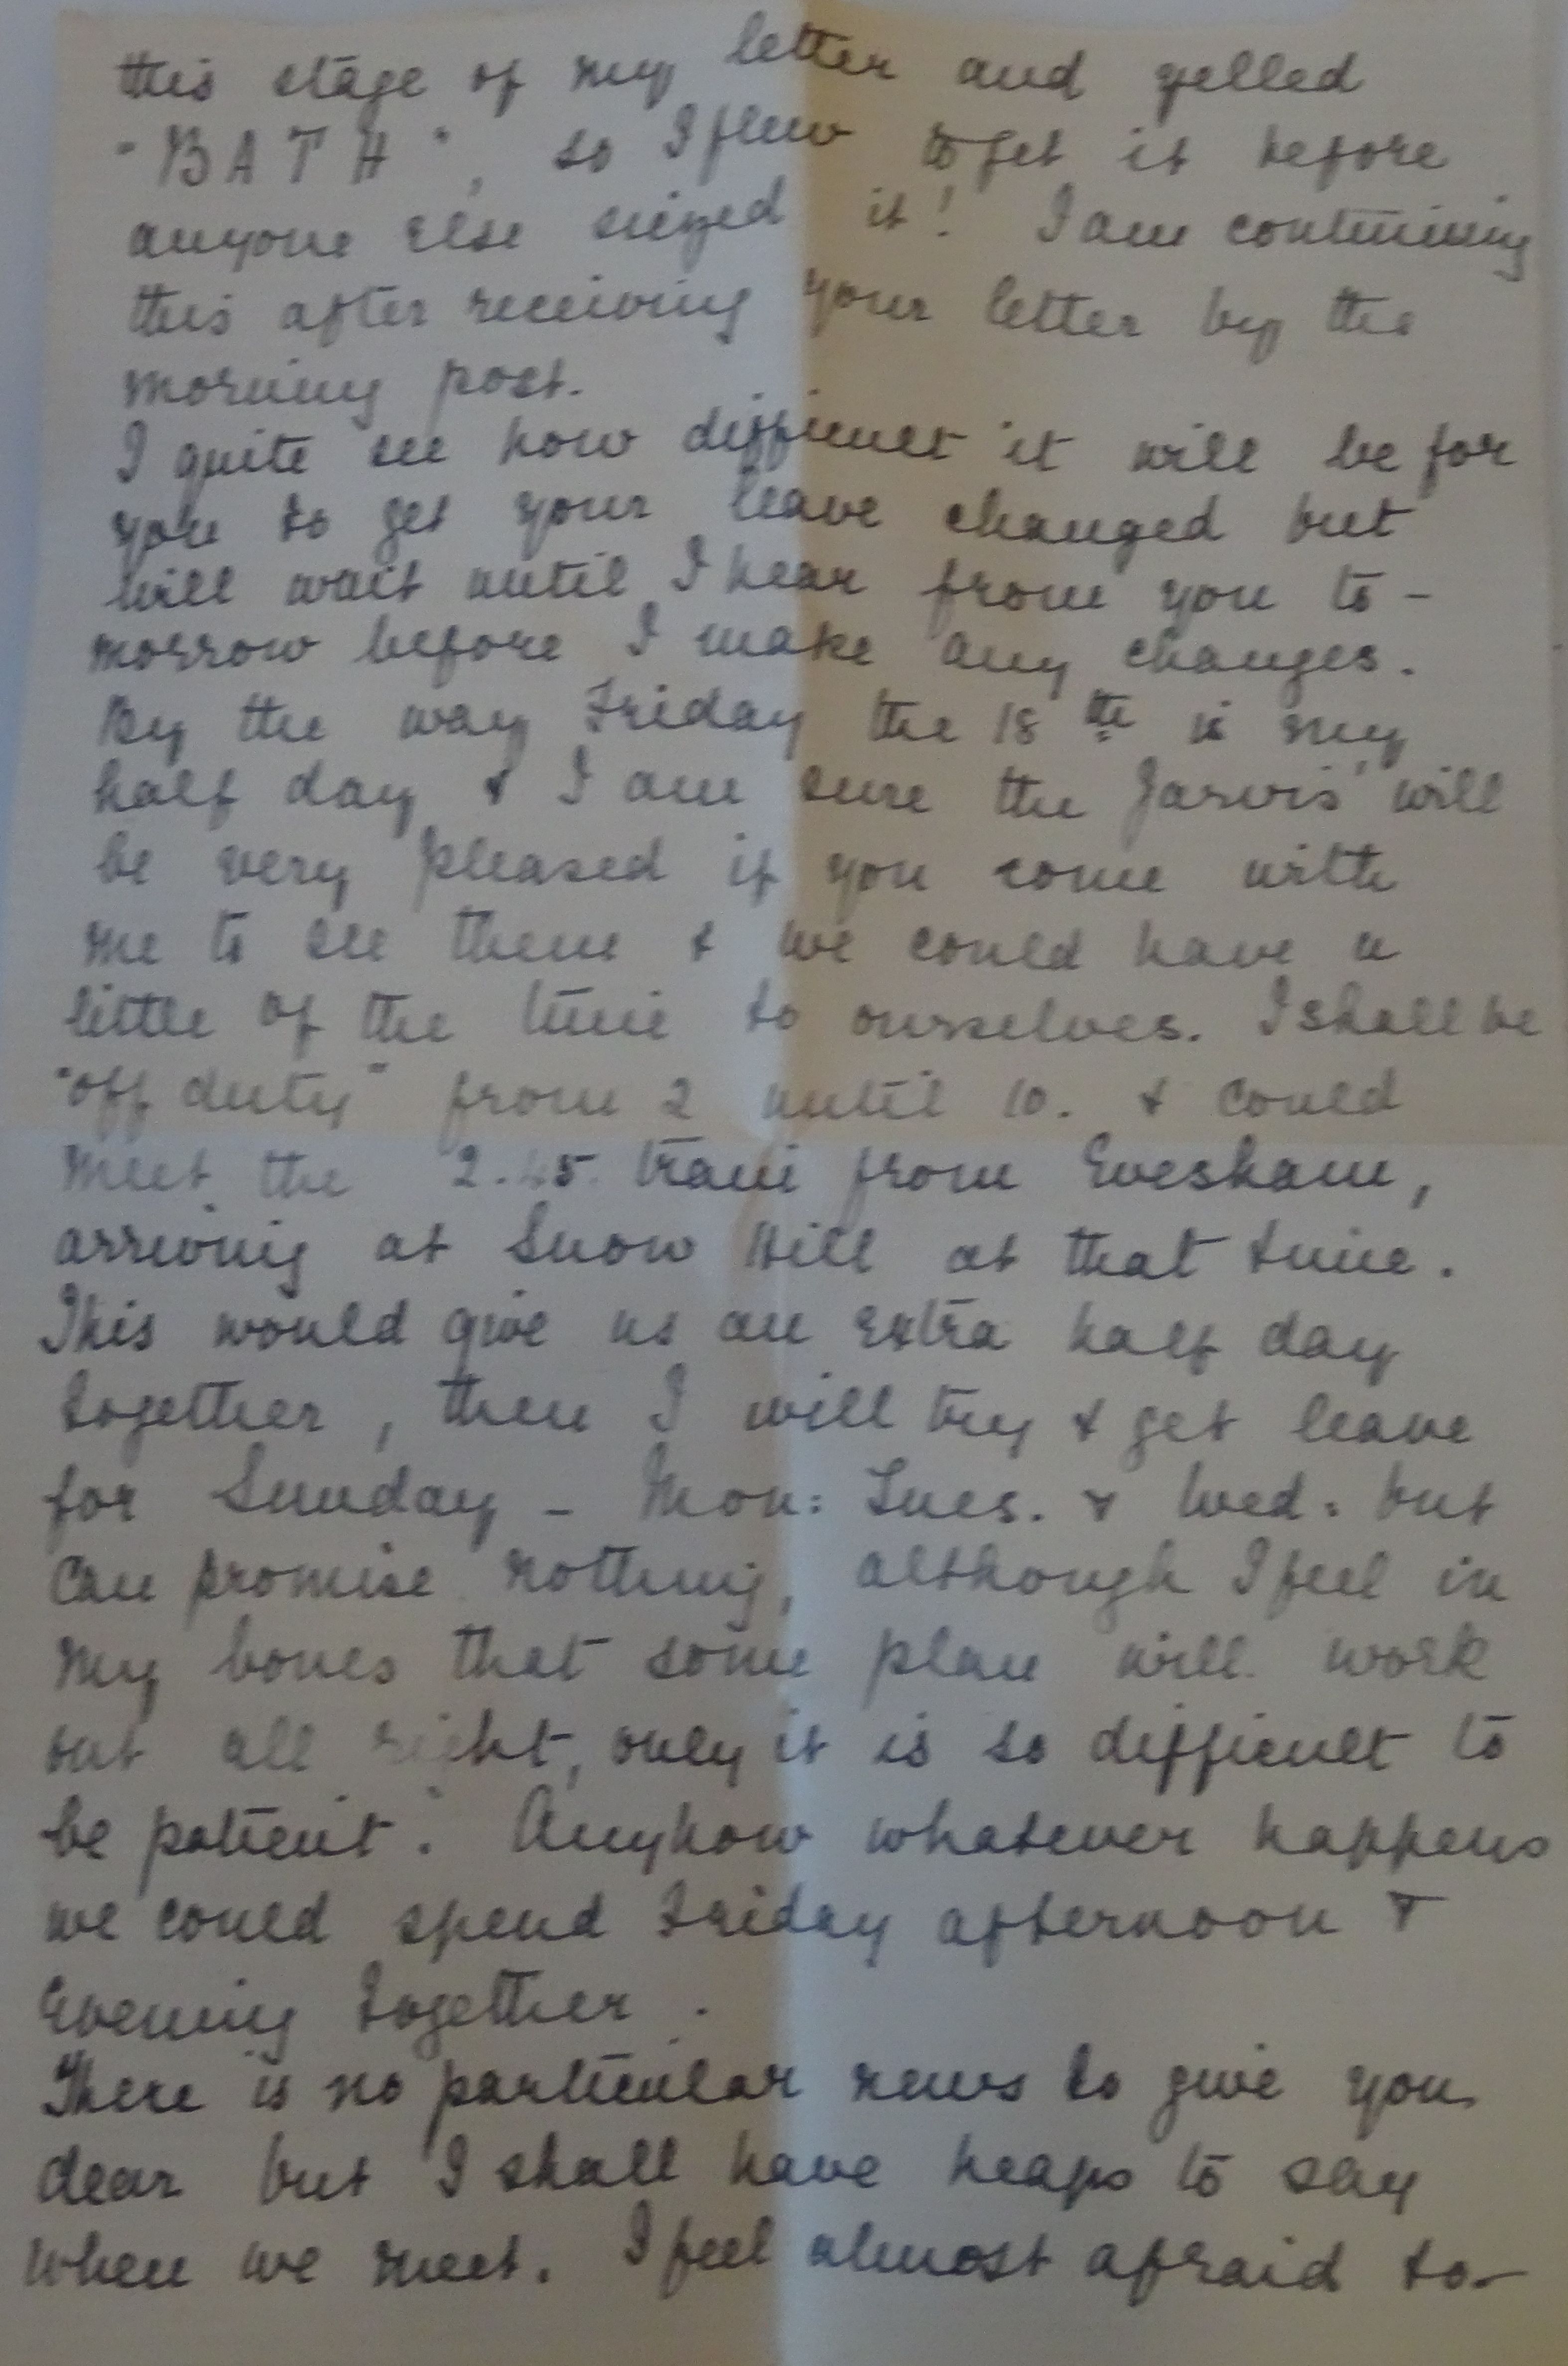 this stage of my letter and yelled
"BATH", so I flew to get it before
anyone else siezed it! I am continuing
this after receiving your letter by the
morning post.
I quite see how difficult it will be for
you to get your leave changed but
will wait until I hear from you to-
morrow before I make any changes.
By the way Friday the 18th is my
half day & I am sure the Jarvis' will
be very pleased if you come with
me to see them & we could have a
little of the time to ourselves. I shall be
"off duty" from 2 until 10. & could
meet the 2.45. train from Evesham,
arriving at Snow Hill at that time.
This would give us an extra half day
together, then I will try & get leave
for Sunday - Mon: Tues. & Wed. but
can promise nothing, although I feel in
my bones that some plan will work
out all right, only it is so difficult to
be patient. Anyhow whatever happens
we could spend Friday afternoon &
Evening together.
There is no particular news to give you
dear but I shall have heaps to say
when we meet. I feel almost afraid to